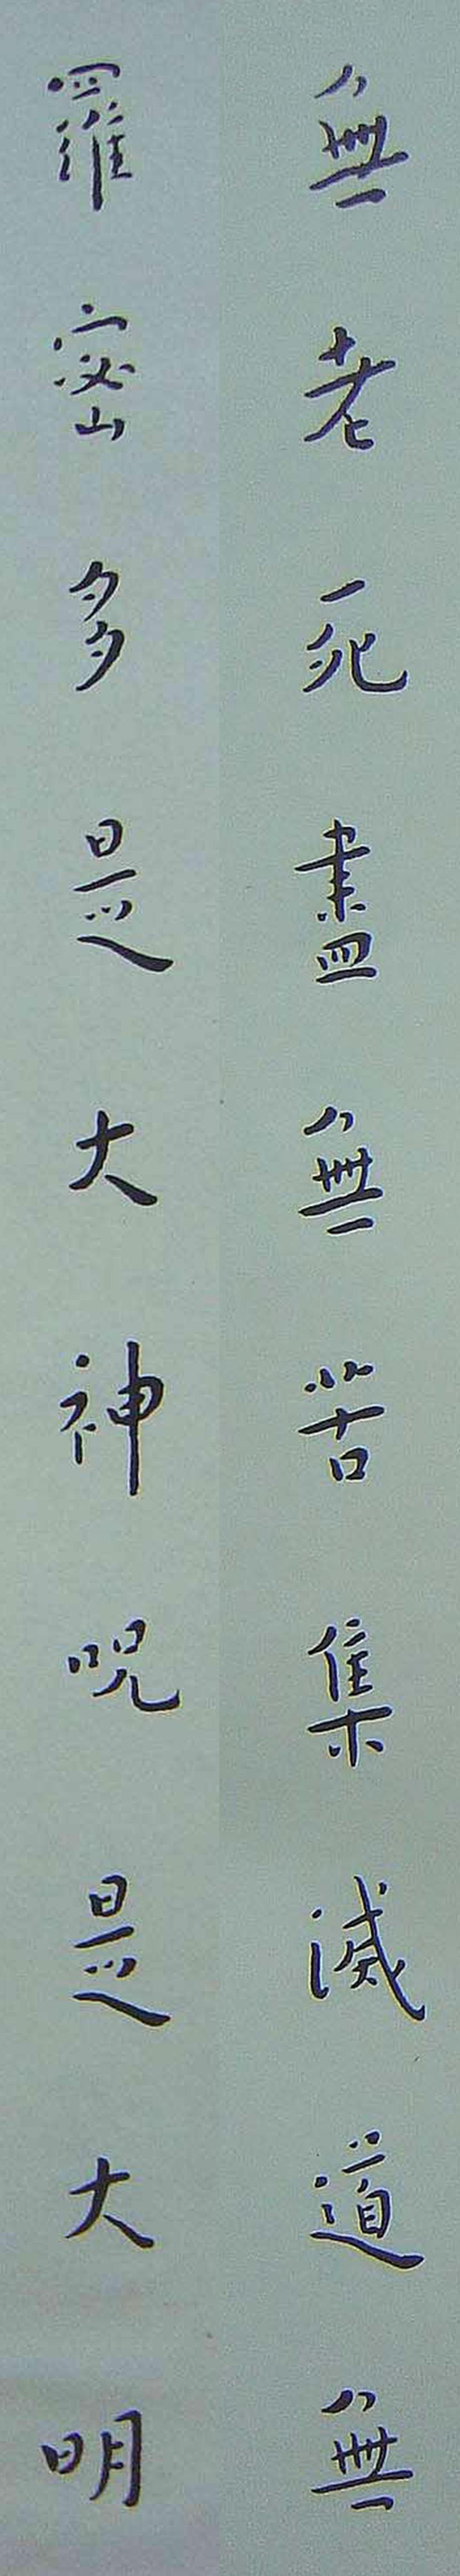 無老死盡無苦集滅道無
羅密多是大神呪是大明